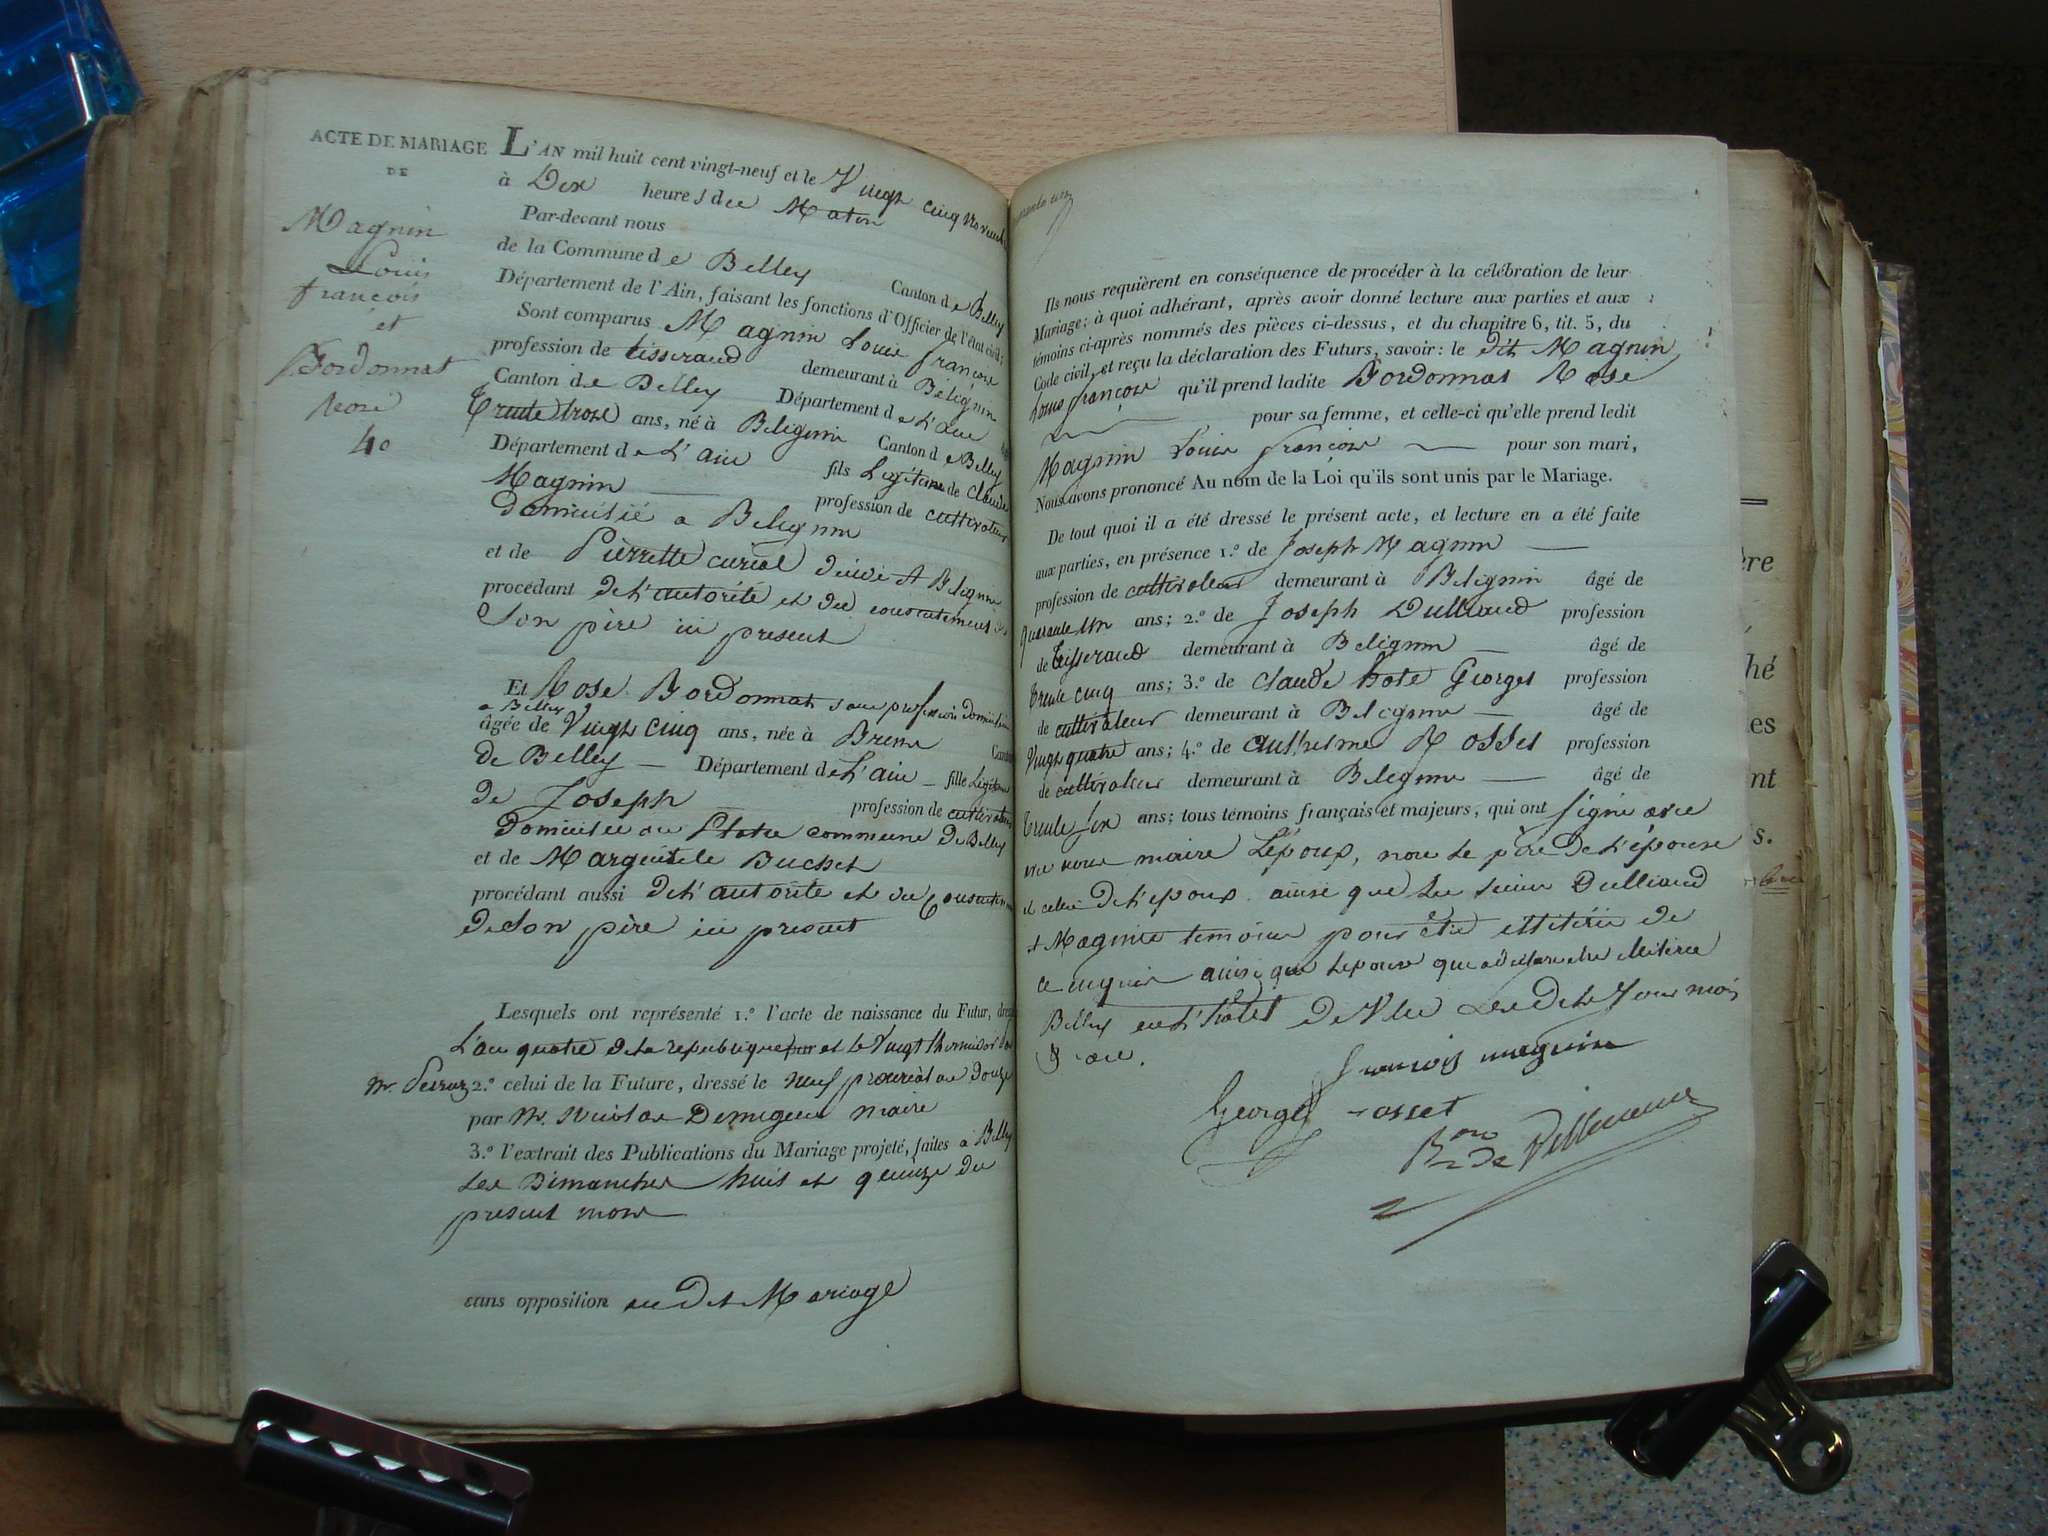 ACTE DE MARIAGE
DE
Magnin
Louis
françois
et
Bordonnat
Rose
40
L'AN mil huit cent vingt-neuf et le Vingt cinq novembre
à Dix heures du Matin
Par-devant nous
de la Commune de Belley Canton de Belley
Département de l'Ain, faisant les fonctions d'Officier de l'état civil;
Sont comparus Magnin Louis françois
profession de tisserand demeurant à Bélignin
Canton de Belley Département de L'ain
Trente trois ans, né à Bélignin Canton de Belley
Département de L'ain fils Légitime de Claude
Magnin profession de cultivateur
domicilié a Belignin
et de Pierrette curial décédé A Belignin
procédant de L'autorité et du consentement de
Son père ici present
Et Rose Bordonnat sans profession domiciliée
a Belley
âgée de Vingt cinq ans, née à Brens Canton
de Belley Département de L'ain fille Légitime
de Joseph profession de cultivateur
domicilié au commune de Belley
et de Marguerite Buchet
procédant aussi de L'autorité et du Consentement
de Son père ici present
Lesquels ont représenté 1.º l'acte de naissance du Futur, dressé
L'an quatre de la republique et le Vingt thermidor par
mr. 2.º celui de la Future, dressé le neuf prairial an douze
par mr. Nicolas maire
3.º l'extrait des Publications du Mariage projeté, faites à Belley
Les Dimanches huit et quinze du
present mois
sans opposition au dit Mariage
Ils nous requièrent en conséquence de procéder à la célébration de leur
Mariage; à quoi adhérant, après avoir donné lecture aux parties et aux
témoins ci-après nommés des pièces ci-dessus, et du chapitre 6, tit. 5, du
Code civil, et reçu la déclaration des Futurs, savoir: le dit Magnin
Louis françois qu'il prend ladite Bordonnat Rose
pour sa femme, et celle-ci qu'elle prend ledit
Magnin Louis françois pour son mari,
Nous avons prononcé Au nom de la Loi qu'ils sont unis par le Mariage.
De tout quoi il a été dressé le présent acte, et lecture en a été faite
aux parties, en présence 1.º de Joseph Magnin
profession de cultivateur demeurant à Belignin âgé de
quarante un ans; 2.º de Joseph Dulliand profession
de tisserand demeurant à Belignin âgé de
trente cinq ans; 3.º de Claude Georges profession
de cultivateur demeurant à Belignin âgé de
Vingt quatre ans; 4.º de anthelme Rosset profession
de cultivateur demeurant à Belignin âgé de
trente six ans; tous témoins français et majeurs, qui ont signé avec
nous maire L'époux, non le père de L'épouse
et celui de L'epoux ainsi que Les Sieurs Dulliand
et Magnin temoins pour être illiterés de
ce enquis ainsi que Lepouse qui a déclaré être illiterée
Belley en L'hôtel de Ville Les dits Jour mois
& an.
francois magnin
George rosset
Bon de